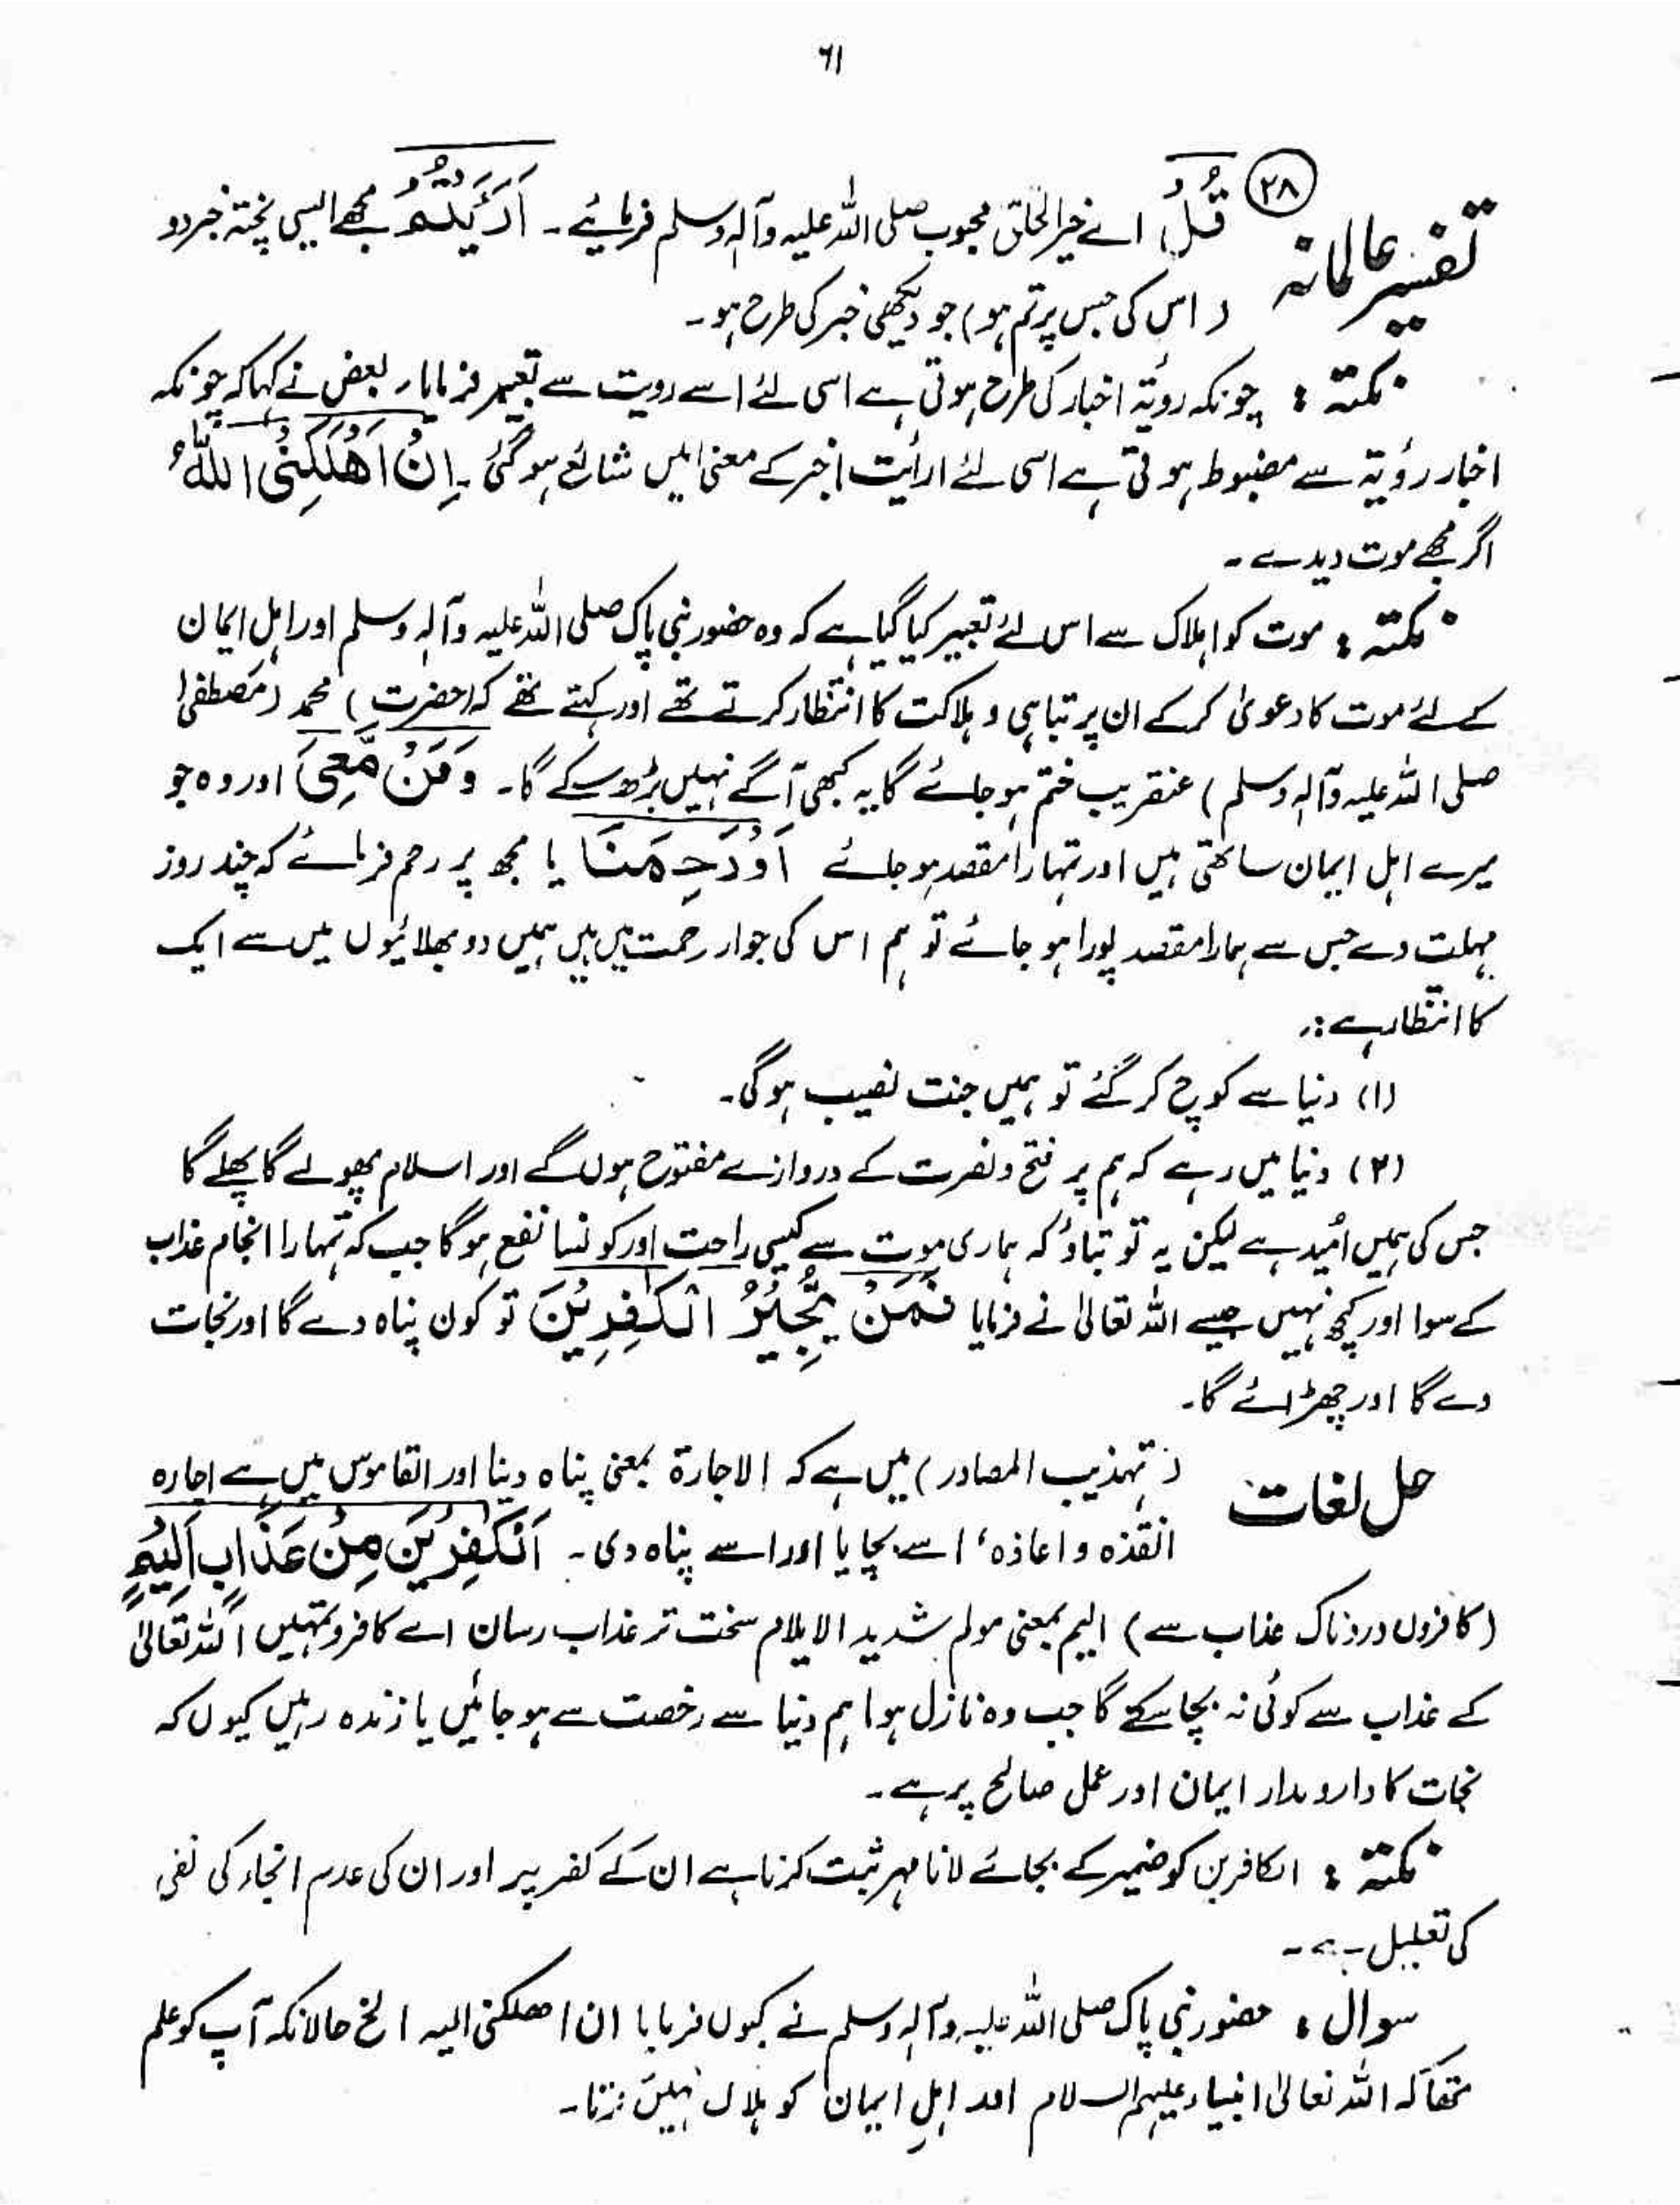 ۶۱
تفسیر عالمانہ ۲۸ قُلْ اے خیر الخلق محبوب صلی اللہ علیہ وآلہ وسلم فرمائیے۔ اَرَءَیْتُمْ مجھے ایسی پختہ خبر دو
( اس کی جس پر تم ہو) جو دیکھی خبر کی طرح ہو۔
نکتہ : چونکہ رؤیۃ اخبار کی طرح ہوتی ہے اسی لئے اسے رویت سے تعبیر فرمایا۔ بعض نے کہا کہ چونکہ
اخبار رؤیۃ سے مضبوط ہوتی ہے اسی لئے ارأیت اخبر کے معنیٰ میں شائع ہوگئی۔ اِنْ اَھْلَکَنِیَ اللّٰہُ
اگر مجھے موت دیدے۔
نکتہ : موت کو اہلاک سے اس لئے تعبیر کیا گیا ہے کہ وہ حضور نبی پاک صلی اللہ علیہ وآلہ وسلم اور اہل ایمان
کے لئے موت کا دعویٰ کر کے ان پر تباہی و ہلاکت کا انتظار کرتے تھے اور کہتے تھے کہ (حضرت) محمد (مصطفیٰ
صلی اللہ علیہ وآلہ وسلم) عنقریب ختم ہو جائے گا یہ کبھی آگے نہیں بڑھ سکے گا۔ وَ مَنْ مَّعِیَ اور وہ جو
میرے اہل ایمان ساتھی ہیں اور تمہارا مقصد ہو جائے اَوْ رَحِمَنَا یا مجھ پر رحم فرمائے کہ چند روز
مہلت دے جس سے ہمارا مقصد پورا ہو جائے تو ہم اس کی جوار رحمت میں ہیں ہمیں دو بھلائیوں میں سے ایک
کا انتظار ہے :۔
(۱) دنیا سے کوچ کر گئے تو ہمیں جنت نصیب ہوگی۔
(۲) دنیا میں رہے کہ ہم پر فتح و نصرت کے دروازے مفتوح ہوں گے اور اسلام پھولے گا پھلے گا
جس کی ہمیں اُمید ہے لیکن یہ تو بتاؤ کہ ہماری موت سے کیسی راحت اور کونسا نفع ہوگا جب کہ تمہارا انجام عذاب
کے سوا اور کچھ نہیں جیسے اللہ تعالیٰ نے فرمایا فَمَنْ یُّجِیْرُ الْکٰفِرِیْنَ تو کون پناہ دے گا اور نجات
دے گا اور چھڑائے گا۔
حل لغات (تہذیب المصادر) میں ہے کہ الاجارۃ بمعنی پناہ دینا اور القاموس میں ہے اجارہ
انقذہ واعاذہ، اسے بچایا اور اسے پناہ دی۔ اَلْکٰفِرِیْنَ مِنْ عَذَابٍ اَلِیْمٍ
(کافروں دردناک عذاب سے) الیم بمعنی مولم شدید الایلام سخت تر عذاب رسان اے کافرو تمہیں اللہ تعالیٰ
کے عذاب سے کوئی نہ بچا سکے گا جب وہ نازل ہوا ہم دنیا سے رخصت سے ہو جائیں یا زندہ رہیں کیوں کہ
نجات کا دارومدار ایمان اور عمل صالح پر ہے۔
نکتہ : الکافرین کو ضمیر کے بجائے لانا مہر ثبت کرنا ہے ان کے کفر پر اور ان کی عدم انجاء کی نفی
کی تعلیل ہے۔
سوال : حضور نبی پاک صلی اللہ علیہ وآلہ وسلم نے کیوں فرمایا ان اھلکنی الیہ الخ حالانکہ آپ کو علم
تھا کہ اللہ تعالیٰ انبیاء علیہم السلام اور اہلِ ایمان کو ہلاک نہیں کرتا۔